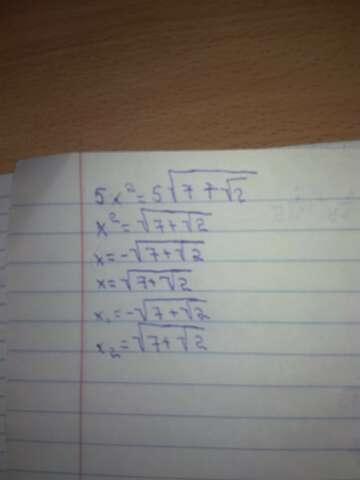 5x² = 5√(7 7√2)
x² = √(7+√2)
x = -√(7+√2)
x = √(7+√2)
x₁ = -√(7+√2)
x₂ = √(7+√2)